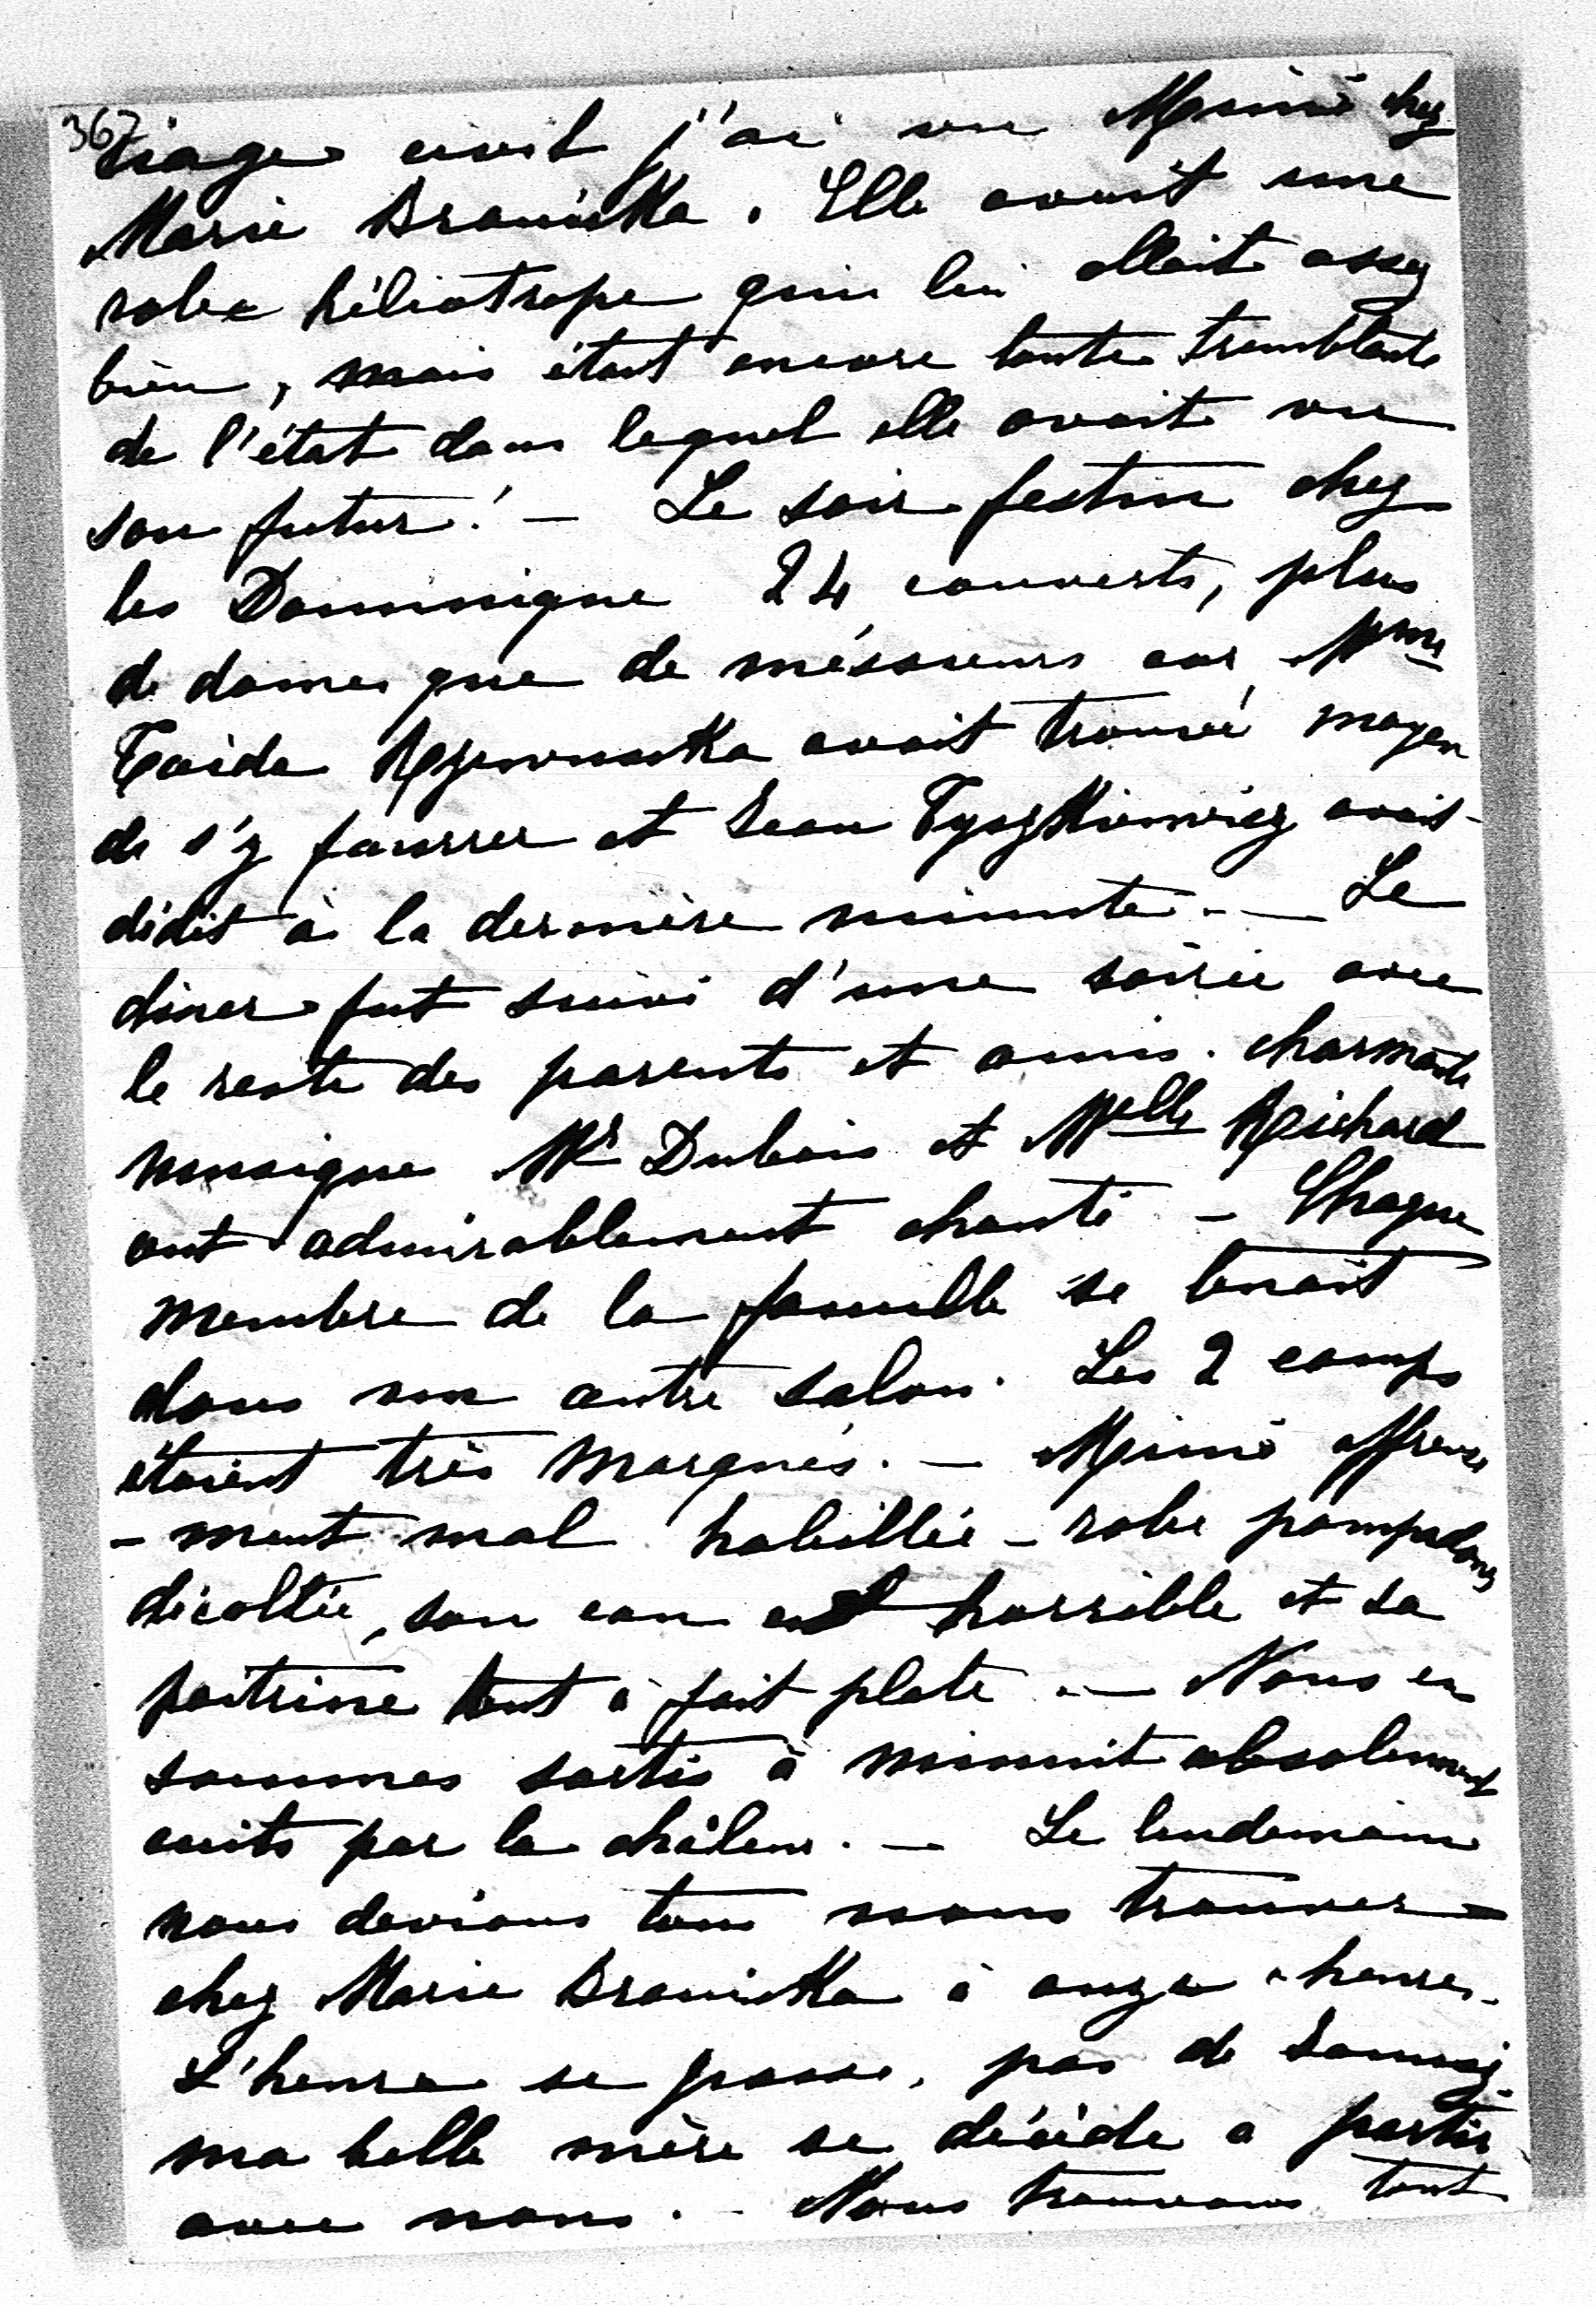 367
riage civil j'ai vu Mimi chez
Marie Branicka. Elle avait une
robe héliotrope qui lui allait assez
bien, mais était encore toute tremblante
de l'état dans lequel elle avait vu
son futur! — Le soir festin chez
les Dominique 24 couverts, plus
de dames que de méssieurs car Mme
Taida Rzewuska avait trouvé moyen
de s'y fourrer et Jean Tyszkiewicz avait
dédit à la dernière minute. — Le
diner fut suivi d'une soirée avec
le reste des parents et amis. charmante
musique Mr Dubois et Melle Richard
ont admirablement chanté — Chaque
membre de la famille se tenait
dans un autre salon. Les 2 camps
étaient très marqués. — Mimi affreuse
- ment mal habillée - robe pompadour
décoltée, son cou est horrible et sa
poitrine tout à fait plate. — Nous en
sommes sortis à minuit absolument
cuits par la châleur. — Le lendemain
nous devions tous nous trouver
chez Marie Branicka à onze heures.
L'heure se passe, pas de
ma belle mère se décide a partir
avec nous. - Nous trouvons tout